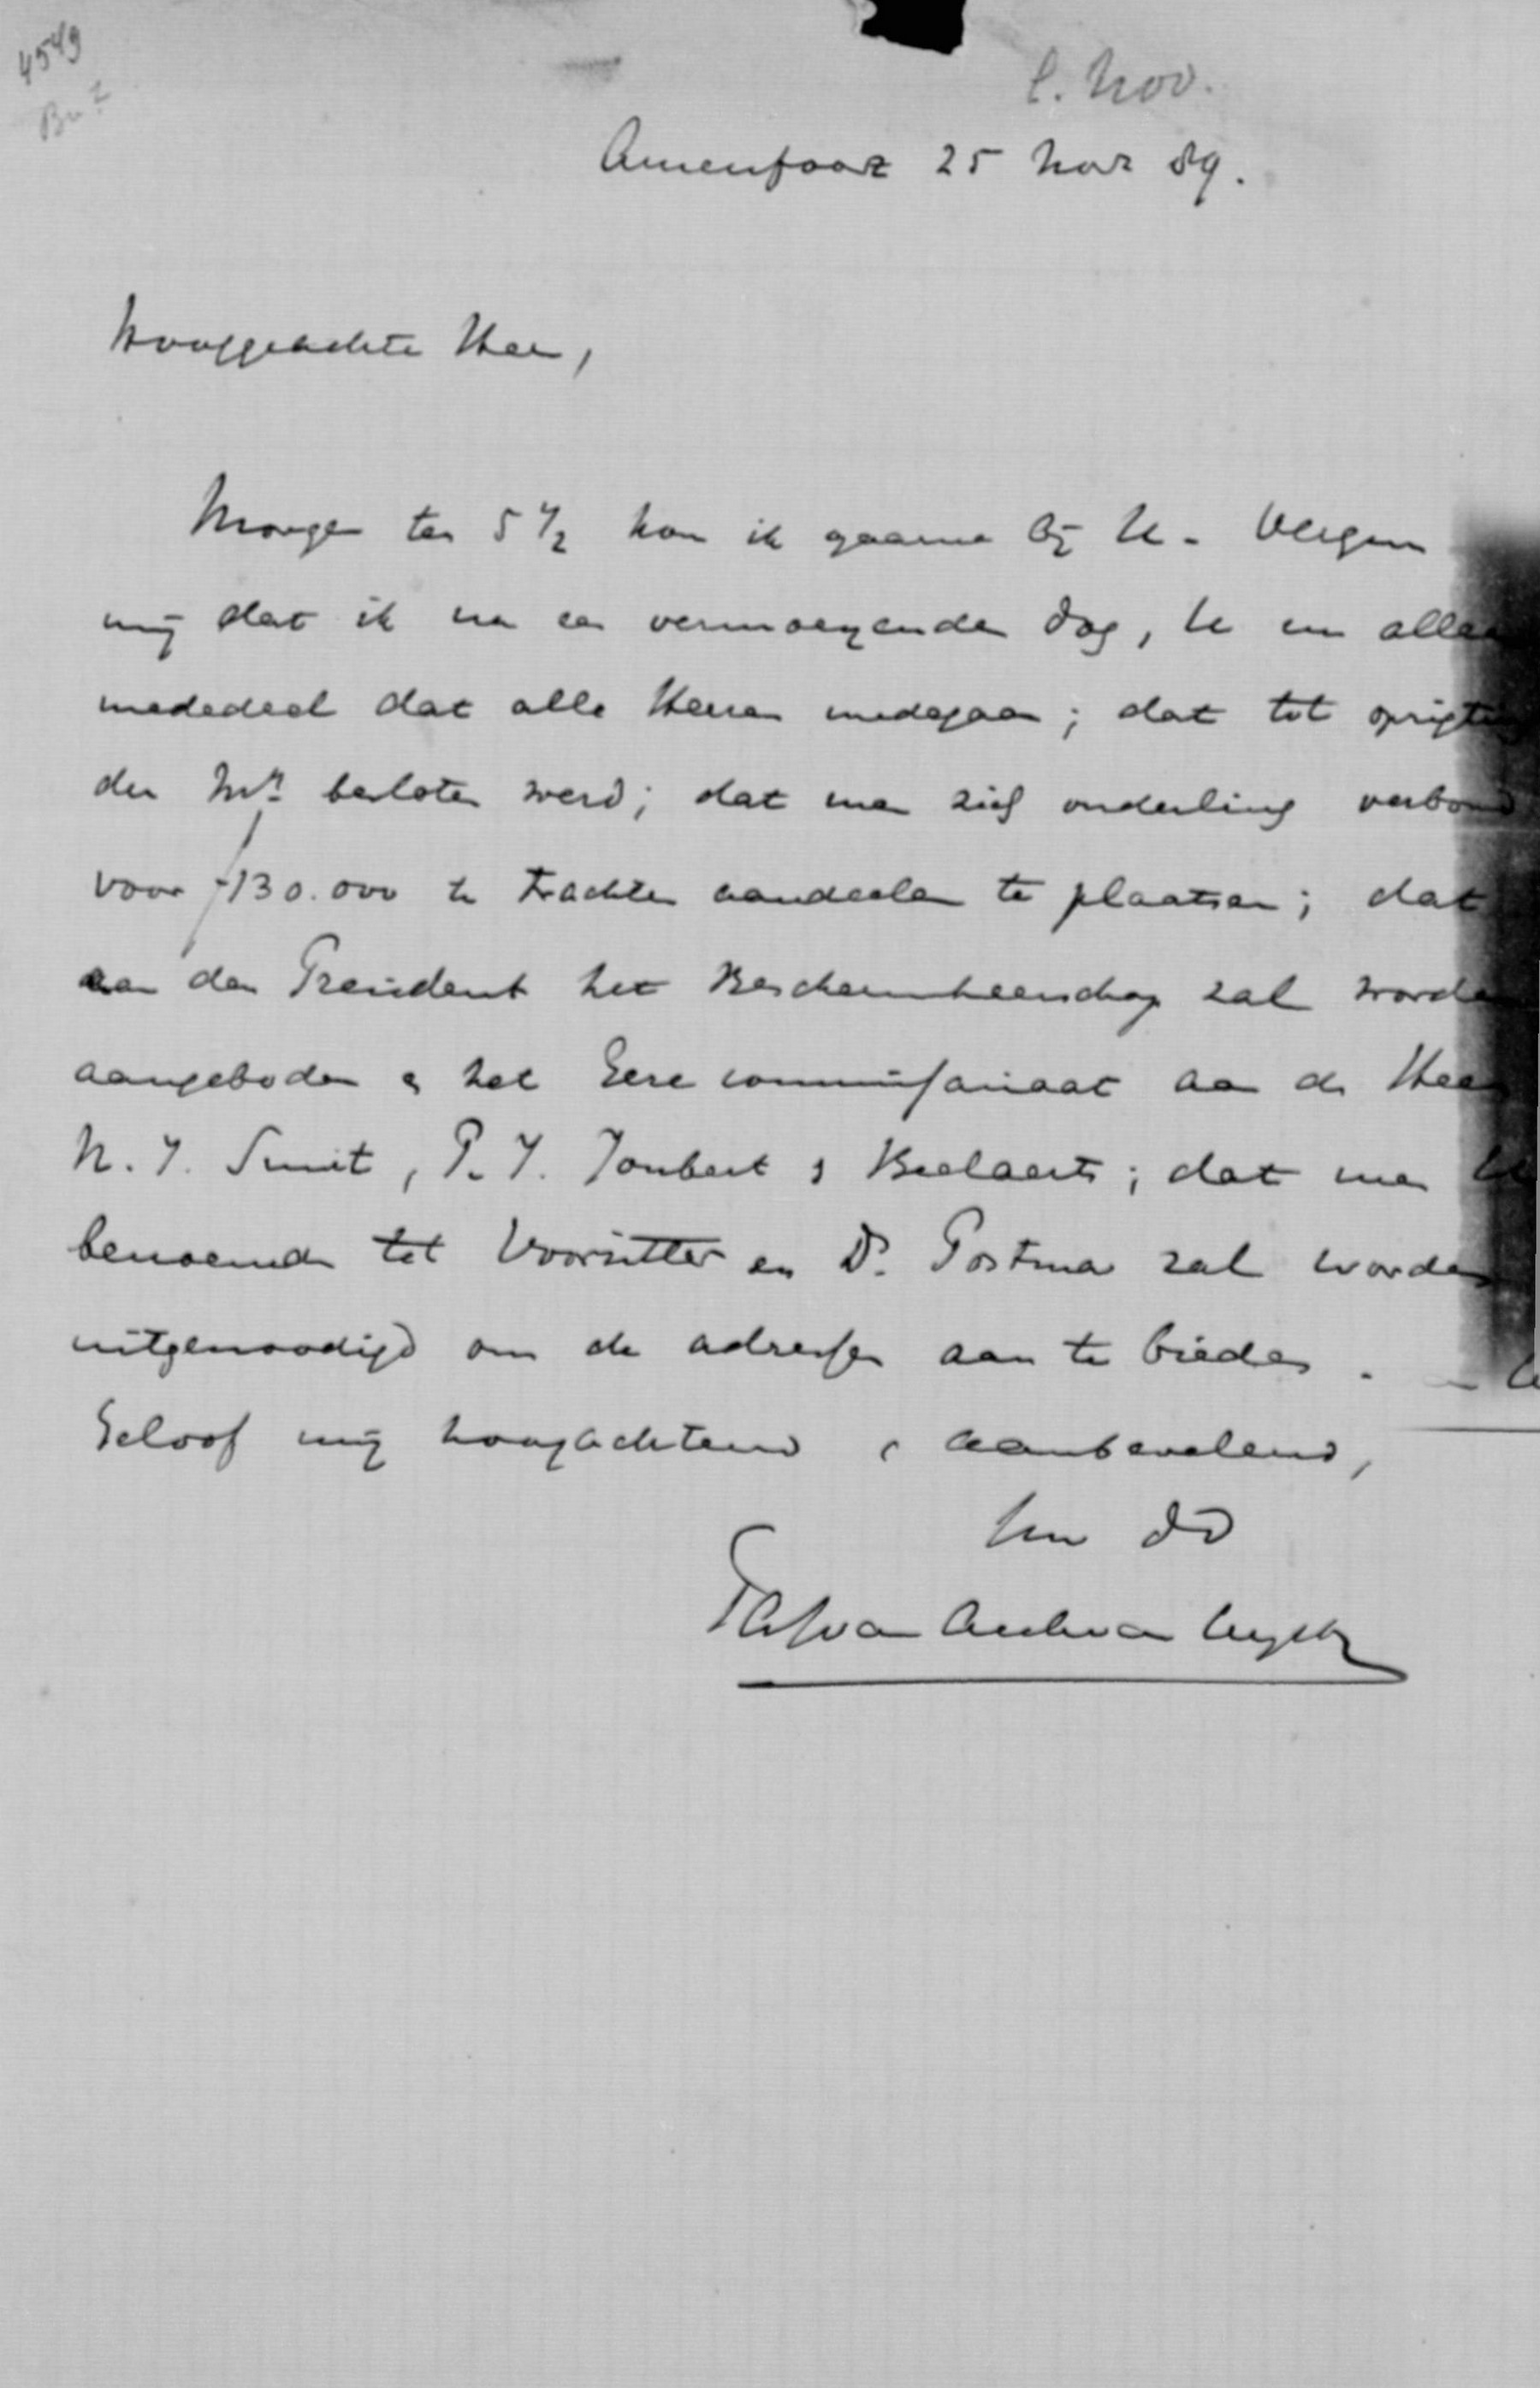 4549
Bu 2
l. Nov.
Amersfoort 25 Nov 89.
Hooggeachte Heer,
Morgen ten 5 1/2 kom ik gaarne bij U. Vergun
mij dat ik na een vermoeyenden dag, U nu alleen
mededeel dat alle Heeren medegaan; dat tot oprigting
der Mij besloten werd; dat men zich onderling verbond
voor ƒ130.000 te trachten aandeelen te plaatsen; dat
aan den President het Beschermheerschap zal worden
aangeboden & het Eere commissariaat aan de Heeren
N. J. Smit, P. J. Joubert & Beelaerts; dat men U
benoemde tot Voorzitter en Dr. Postma zal worden
uitgenoodigd om de adressen aan te bieden. –
Geloof mij hoogachtend & aanbevelend,
Uw dd
van Asch van Wyck